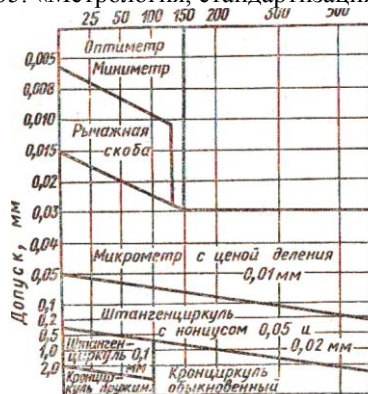 «Метрология, стандартизация
25 50 100 150 200 300 500
Оптиметр
Миниметр
Рычажная
скоба
Микрометр с ценой деления
0,01 мм
Штангенциркуль
с нониусом 0,05 и
0,02 мм
Штанген-
циркуль 0,1
мм
Кронцир-
куль пружин.
Кронциркуль
обыкновенный
Допуск, мм
0,005
0,008
0,010
0,015
0,02
0,03
0,04
0,05
0,1
0,2
0,5
1,0
2,0